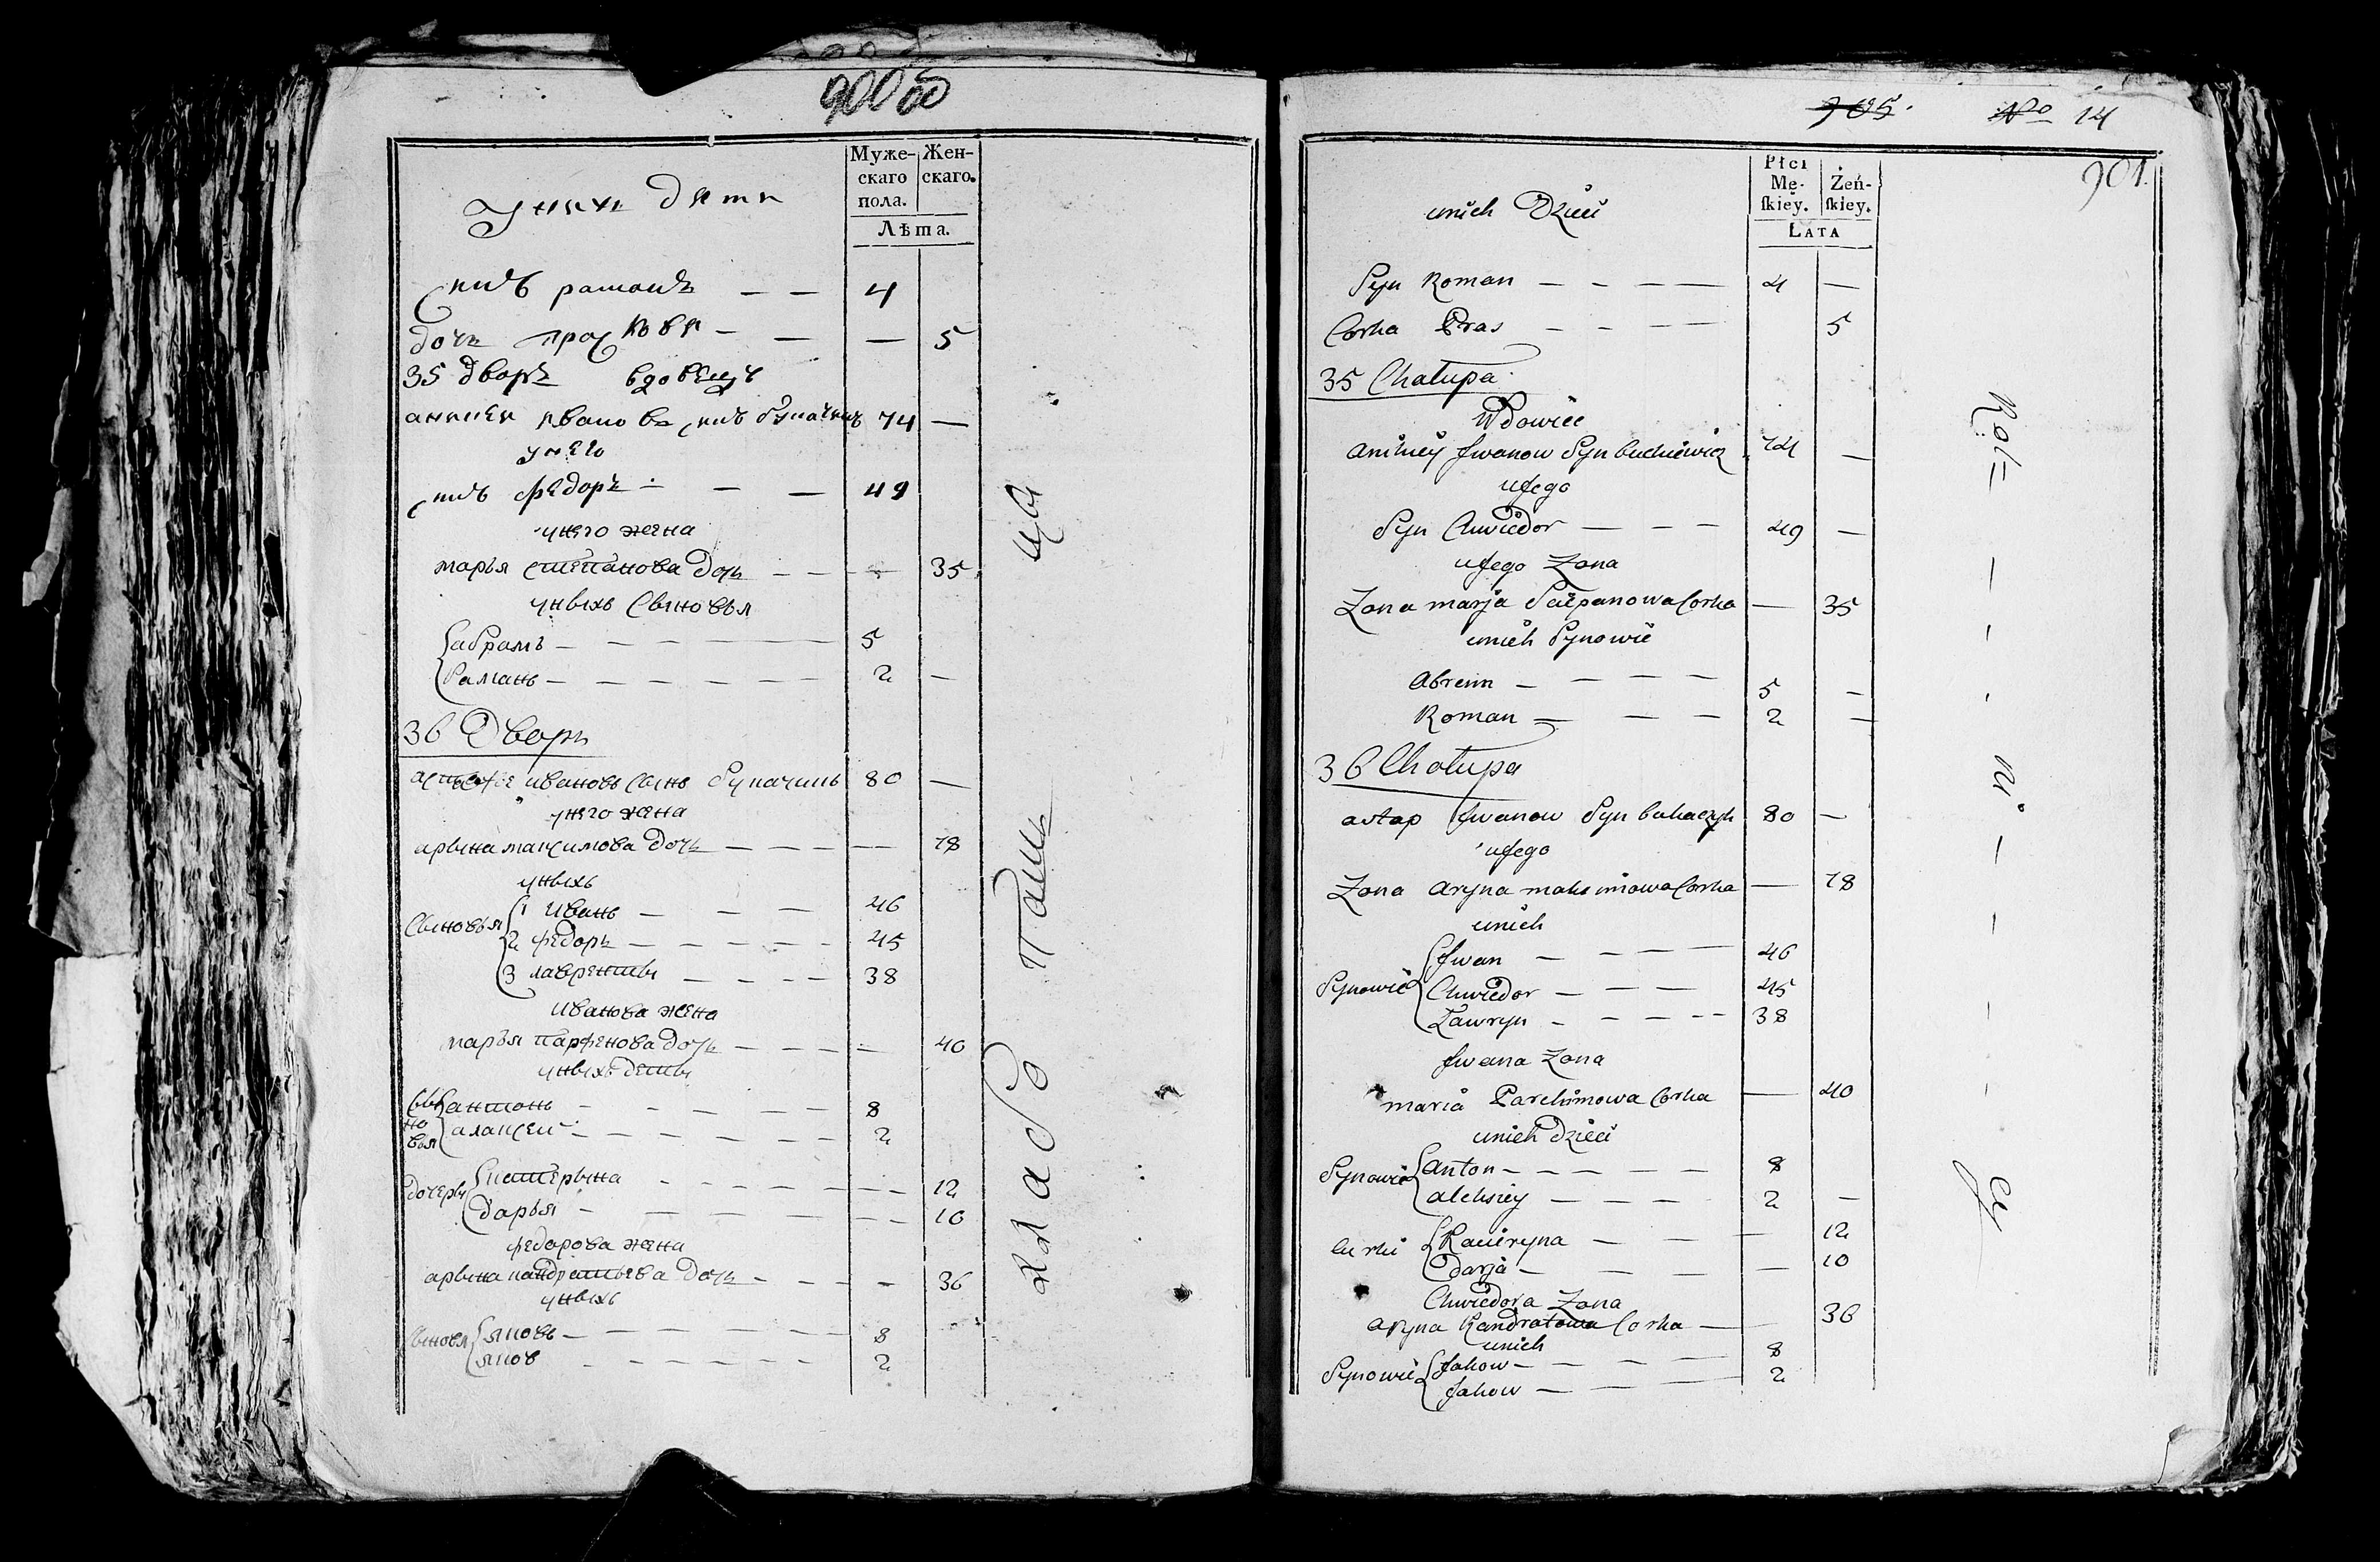 900 об
Муже-
скаго
пола.
Жен-
скаго.
Лѣта.
у нихъ дети
сынъ раманъ — — 4
дочь прасковя — — — 5
35 дворъ вдовецъ
аникеи иванова сынъ букачинъ 74 —
у него
сынъ федоръ — — — 49
у него жена
марья степанова дочь — — — 35
у ныхъ сыновья
абрамъ — — — — — — 5
Рамань — — — — — — 2 —
36 Дворъ
ивановъ сынъ букачинь 80 —
у него жена
арына максимова дочь — — — — 78
у ныхъ
Сыновья
1 Ивань — — — 46
2 федоръ — — — — — 45
3 лаврентыи — — — — 38
Иванова жена
марья парфенова дочь — — — — 40
у ныхъ деты
Сыновья
антонь — — — — — 8
алаксеи — — — — — — 2
дочеры
катерына — — — — — — 12
дарья — — — — — — 10
федорова жена
арына кандратьева дочь — — — — 36
у ныхъ
Сыновя
яковь — — — — — — 8
яков — — — — — — 2
хлабо паш цы
705. No 14
901.
Płci
Mę-
ſkiey.
Żeń-
ſkiey.
LATA
unich Dzieci
Syn Roman — — — — 4 —
Corka Pras — — — — 5
35 Chałupa
Wdowiec
Anikiey Jwanow Syn 74 —
uJego
Syn Chwiedor — — — 49 —
uJego Zona
Zona marja Sciepanowa Corka — 35
unich Synowie
Abram — — — — 5 —
Roman — — — 2 —
36 Chałupa
astap Jwanow Syn bukaczyk 80 —
uJego
Zona Aryna maksimowa Corka — 78
unich
Synowie
Jwan — — — — 46
Chwiedor — — — — 45
Ławryn — — — — — 38
Jwana Zona
maria Parchimowa Corka — 40
unich dzieci
Synowie
anton — — — — — — 8
aleksiey — — — — 2 —
Curki
Kacieryna — — — 12
darja — — — — 10
Chwiedora Zona
aryna Kandratowa Corka — — 36
unich
Synowie
Jakow — — — — 8
Jakow — — — 2
Rol — — ni — — — cy